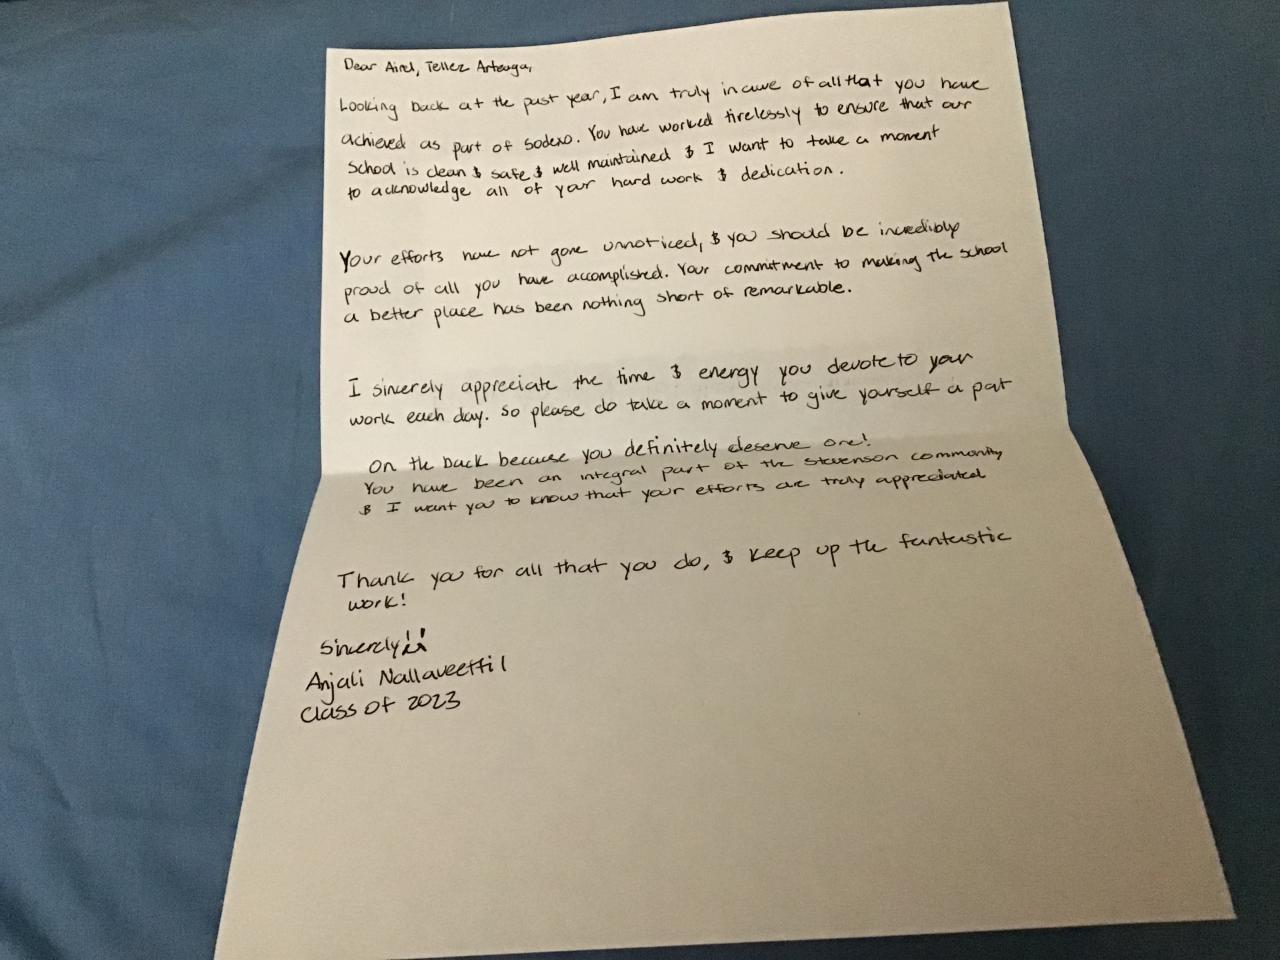 Dear Airel, Tellez Arteaga,
Looking back at the past year, I am truly in awe of all that you have
achieved as part of Sodexo. You have worked tirelessly to ensure that our
School is clean & safe & well maintained & I want to take a moment
to acknowledge all of your hard work & dedication.
Your efforts have not gone unnoticed, & you should be incredibly
proud of all you have accomplished. Your commitment to making the school
a better place has been nothing short of remarkable.
I sincerely appreciate the time & energy you devote to your
work each day. So please do take a moment to give yourself a pat
on the back because you definitely deserve one!
You have been an integral part of the Stevenson community
& I want you to know that your efforts are truly appreciated
Thank you for all that you do, & keep up the fantastic
work!
Sincerely!!
Anjali Nallaveettil
Class of 2023